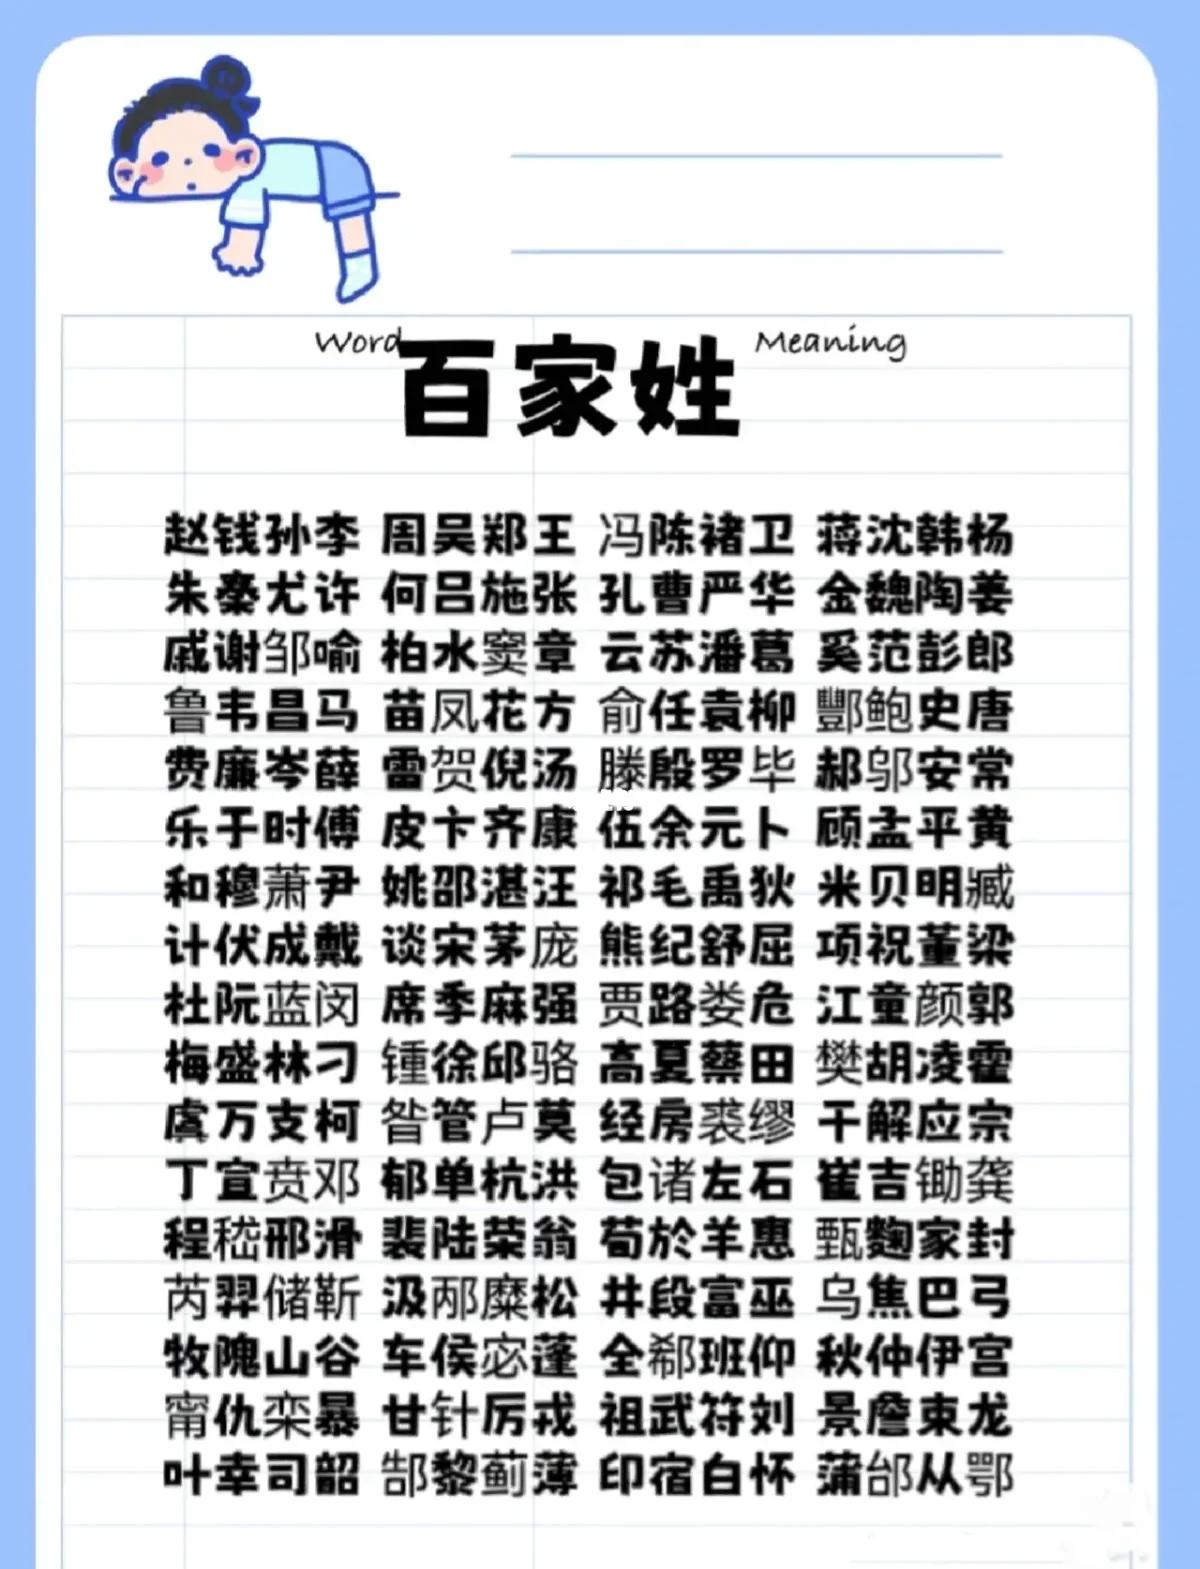 Word
Meaning
百家姓
赵钱孙李 周吴郑王 冯陈褚卫 蒋沈韩杨
朱秦尤许 何吕施张 孔曹严华 金魏陶姜
戚谢邹喻 柏水窦章 云苏潘葛 奚范彭郎
鲁韦昌马 苗凤花方 俞任袁柳 酆鲍史唐
费廉岑薛 雷贺倪汤 滕殷罗毕 郝邬安常
乐于时傅 皮卞齐康 伍余元卜 顾孟平黄
和穆萧尹 姚邵湛汪 祁毛禹狄 米贝明臧
计伏成戴 谈宋茅庞 熊纪舒屈 项祝董梁
杜阮蓝闵 席季麻强 贾路娄危 江童颜郭
梅盛林刁 锺徐邱骆 高夏蔡田 樊胡凌霍
虞万支柯 昝管卢莫 经房裘缪 干解应宗
丁宣贲邓 郁单杭洪 包诸左石 崔吉锄龚
程嵇邢滑 裴陆荣翁 荀於羊惠 甄麴家封
芮羿储靳 汲邴糜松 井段富巫 乌焦巴弓
牧隗山谷 车侯宓蓬 全郗班仰 秋仲伊宫
甯仇栾暴 甘针厉戎 祖武符刘 景詹束龙
叶幸司韶 郜黎蓟薄 印宿白怀 蒲邰从鄂